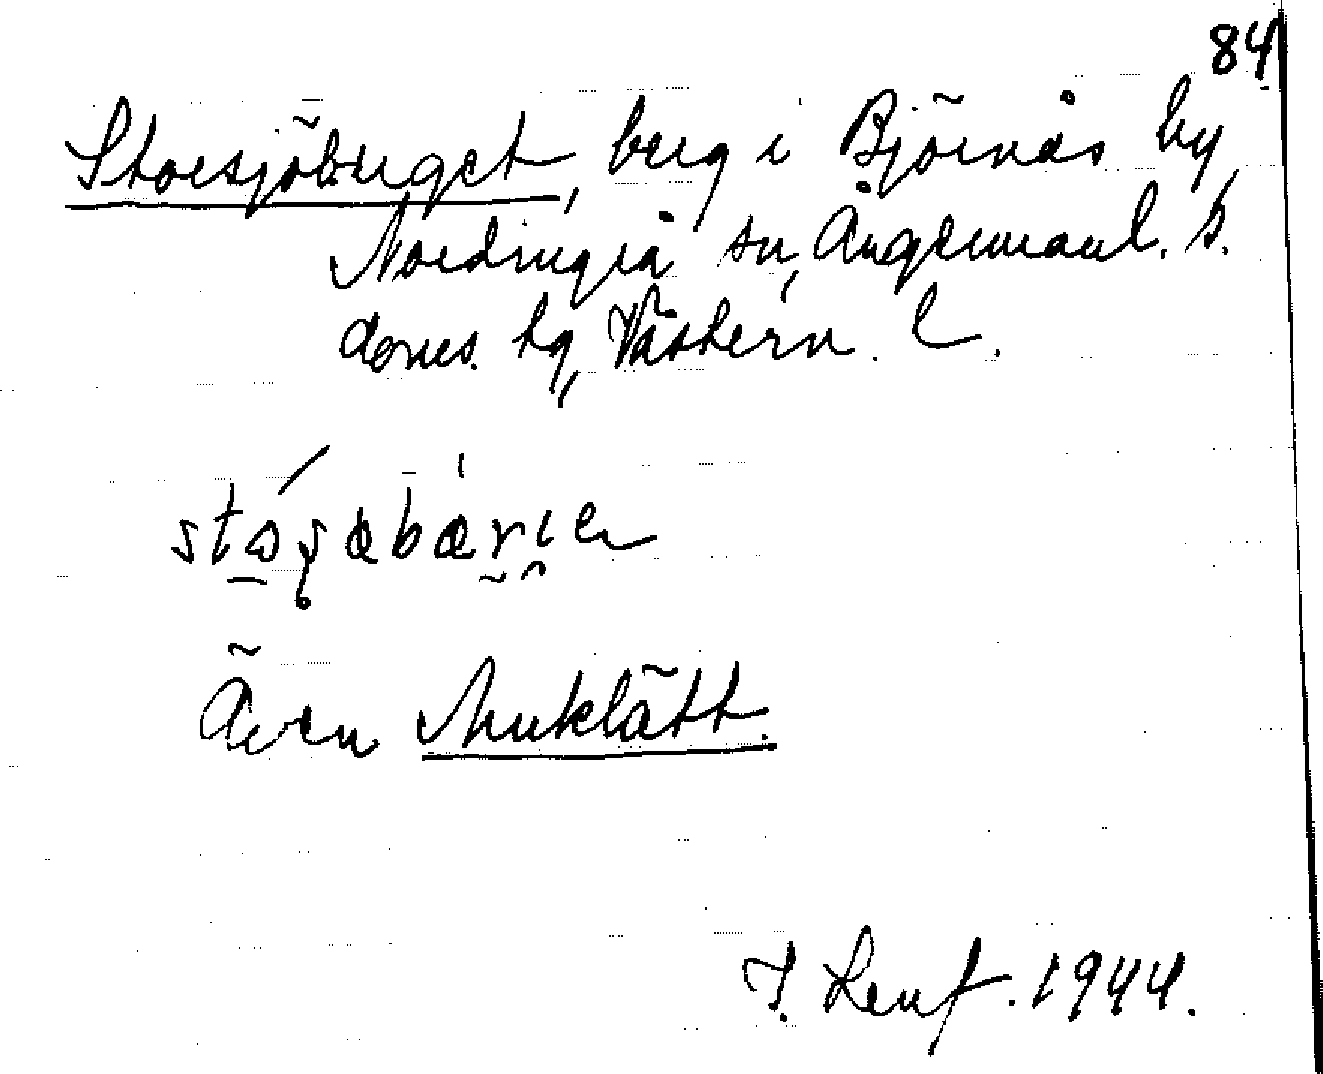 84
Storsjöberget, berg i Björnås by
Nordingrå sn, Ångermanl. s.
doms. hg, Västern. l.
Även Muklätt.
J. Leuf. 1944.